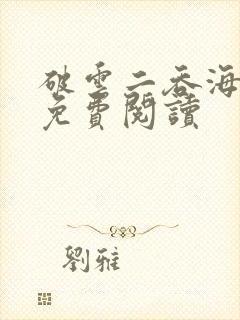 破雲二吞海
免費閱讀
劉雅